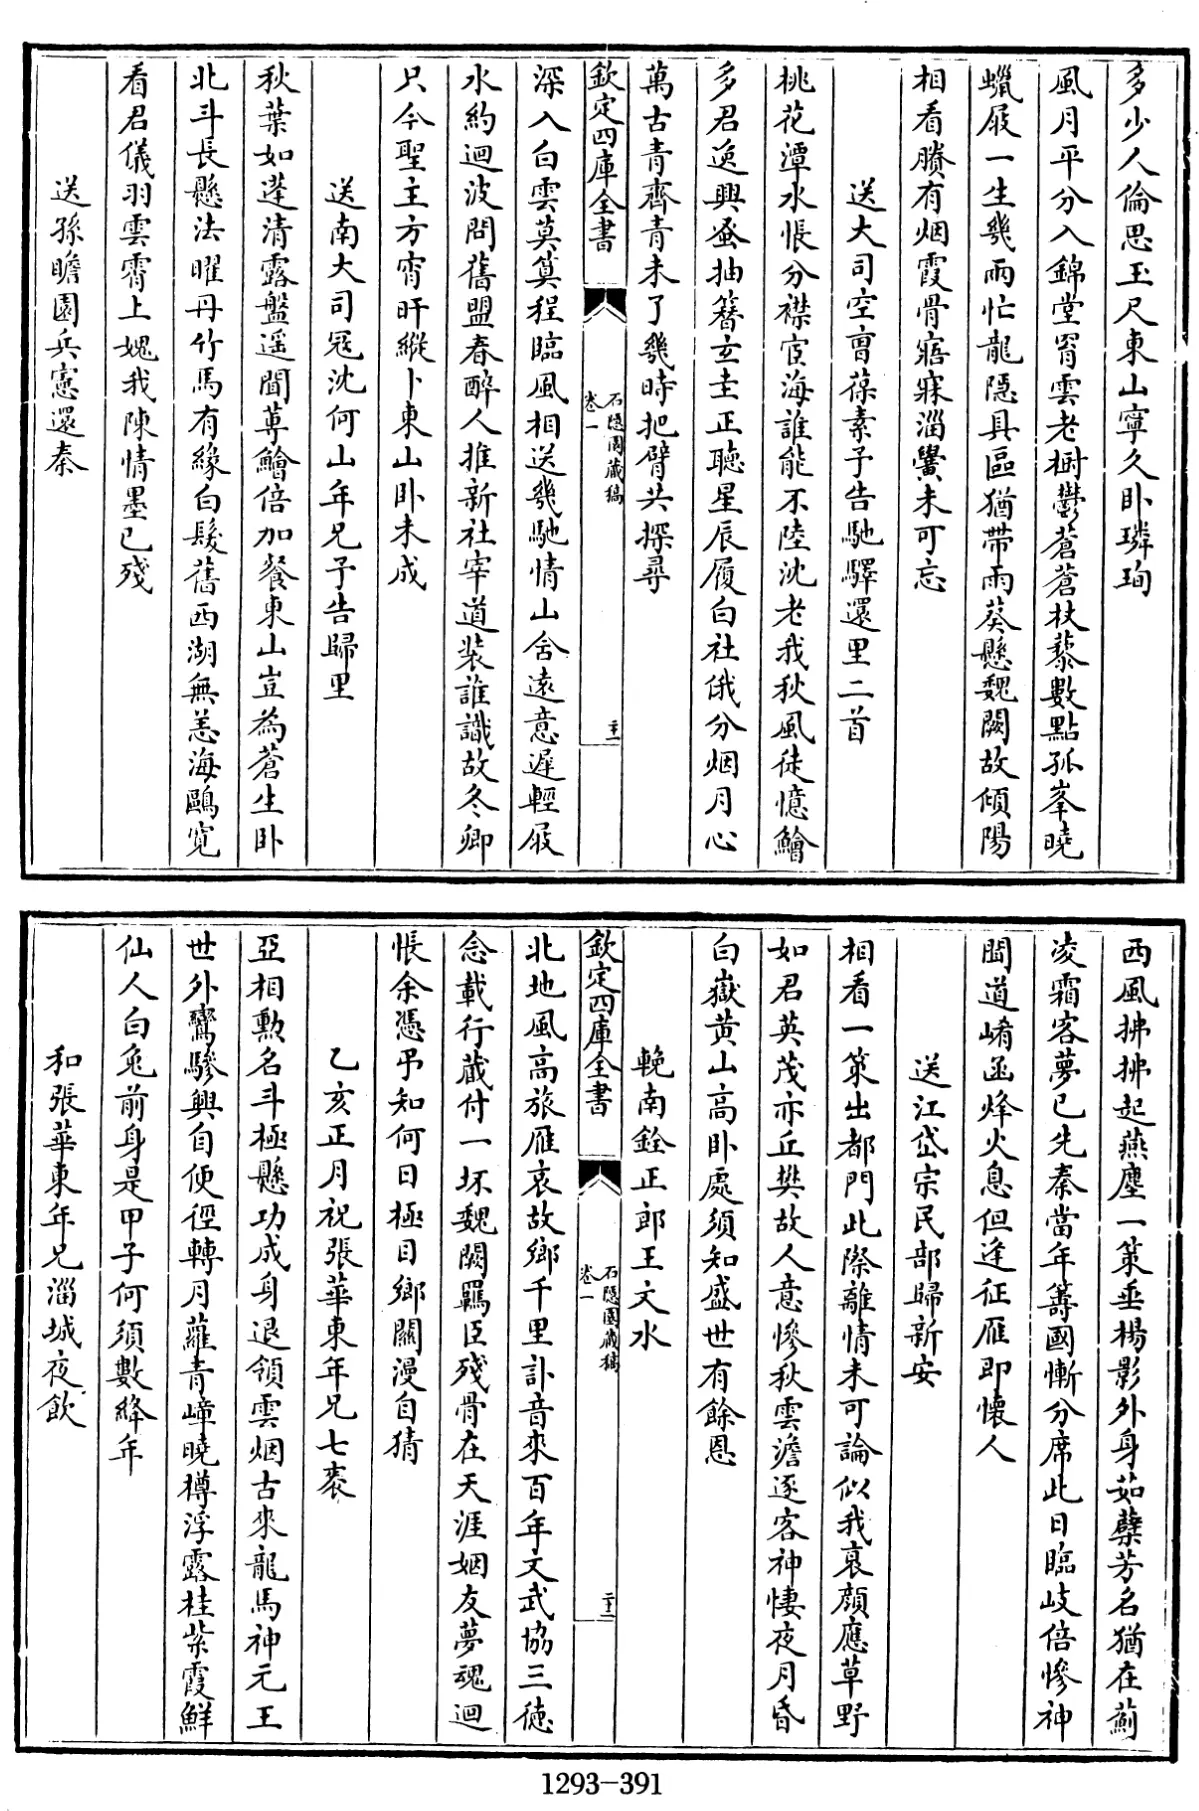 多少人倫思玉尺東山寧久卧璘珣
風月平分入錦堂窅雲老樹鬱蒼蒼杖藜數點孤峯曉
蠟屐一生幾兩忙龍隱具區猶帶雨葵懸魏闕故傾陽
相看賸有烟霞骨寤寐淄黌未可忘
送大司空曹葆素予告馳驛還里二首
桃花潭水悵分襟宦海誰能不陸沈老我秋風徒憶鱠
多君逸興蚤抽簪玄圭正聽星辰履白社俄分烟月心
萬古青齊青未了幾時把臂共探尋
欽定四庫全書
石隱園藏稿
卷一
主
深入白雲莫算程臨風相送幾馳情山舍遠意遲輕屐
水約迴波問舊盟春醉人推新社宰道裝誰識故冬卿
只今聖主方宵旰縱卜東山卧未成
送南大司寇沈何山年兄予告歸里
秋葉如蓬清露盤遥聞蓴鱠倍加餐東山豈為蒼生卧
北斗長懸法曜丹竹馬有緣白髮舊西湖無恙海鷗寬
看君儀羽雲霄上媿我陳情墨已殘
送孫瞻園兵憲還秦
西風拂拂起燕塵一策垂楊影外身茹蘖芳名猶在薊
凌霜客夢已先秦當年籌國慚分席此日臨岐倍慘神
聞道崤函烽火息但逢征雁即懐人
送江岱宗民部歸新安
相看一策出都門此際離情未可論似我衰顔應草野
如君英茂亦丘樊故人意慘秋雲澹逐客神悽夜月昏
白嶽黄山高卧處須知盛世有餘恩
輓南銓正郎王文水
欽定四庫全書
石隱園藏稿
卷一
北地風高旅雁哀故鄉千里訃音來百年文武協三徳
念載行藏付一抔魏闕羈臣殘骨在天涯姻友夢魂迴
悵余憑弔知何日極目鄉關漫自猜
乙亥正月祝張華東年兄七袠
亞相勲名斗極懸功成身退領雲烟古來龍馬神元王
世外鸞驂興自便徑轉月蘿青嶂曉樽浮露桂紫霞鮮
仙人白兔前身是甲子何須數絳年
和張華東年兄淄城夜飲
1293-391